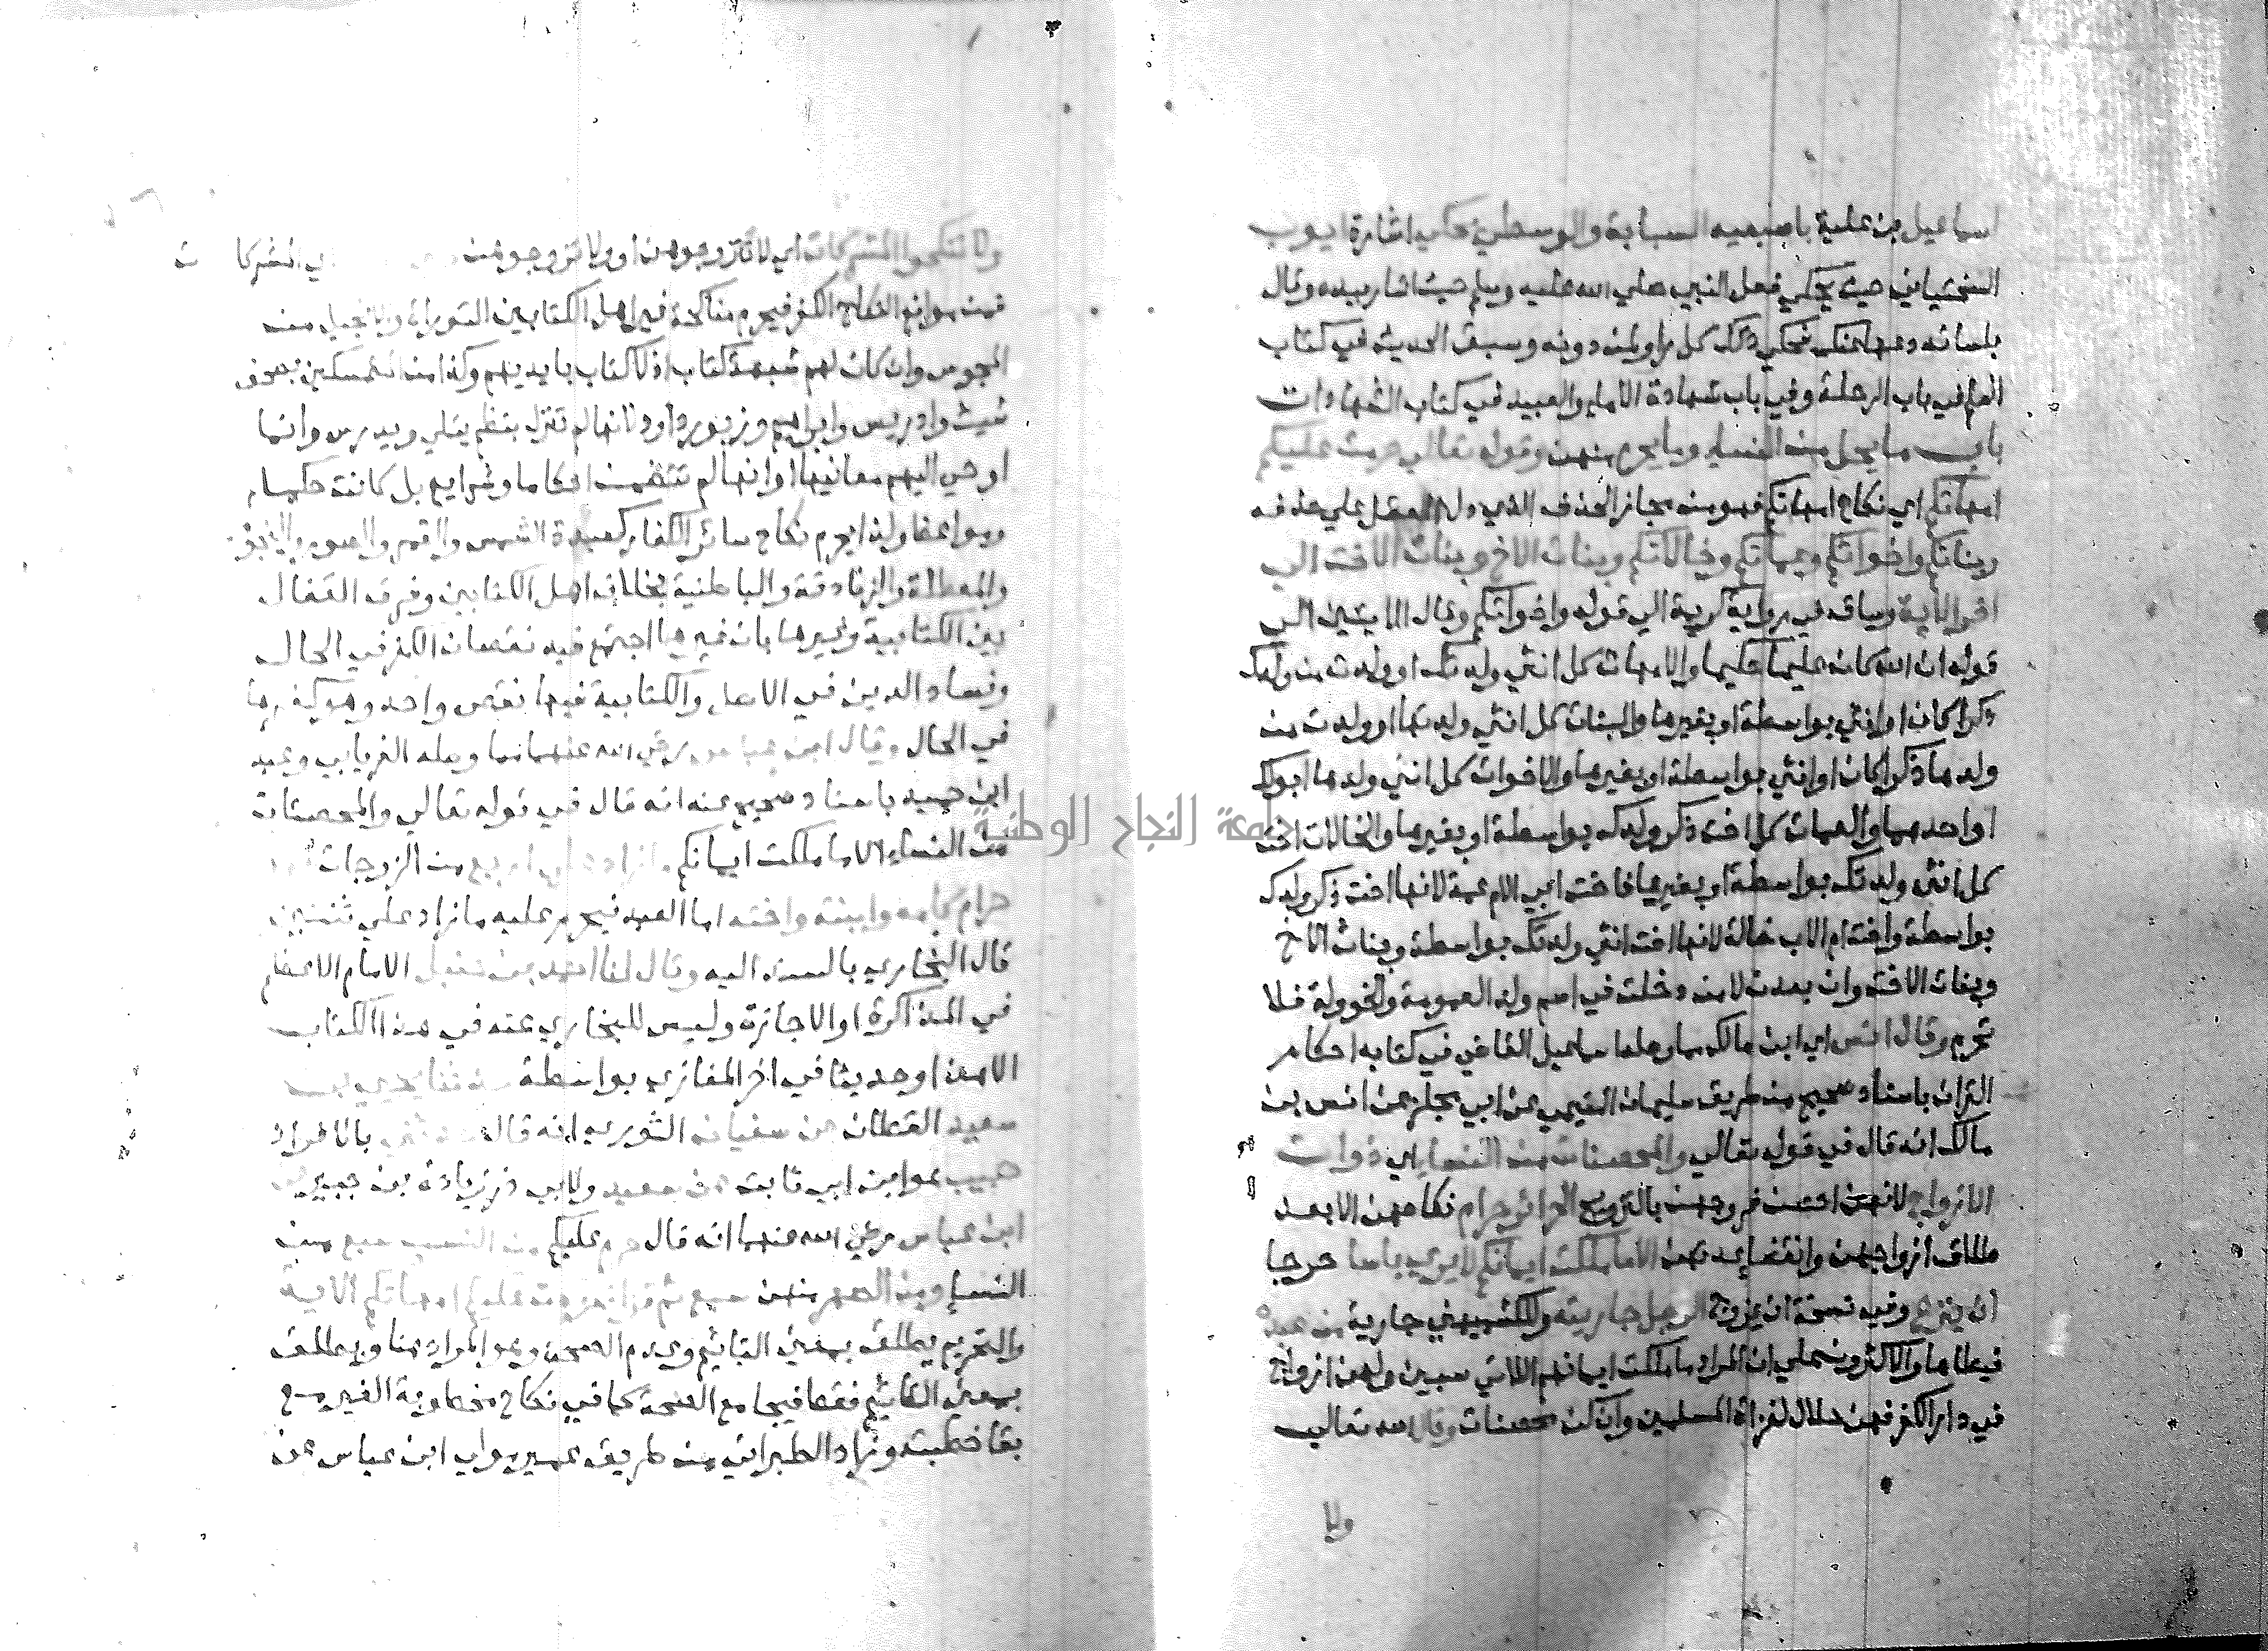 اسماعيل بن علية باصبعيه السبابة والوسطي يحكي اشارة ايوب
السختياني حيث يحكي فعل النبي صلي الله عليه وسلم حيث اشار بيده وقال
بلسانه دعها عنك فحكي ذلك كل راو لمن دونه وسبق الحديث في كتاب
العلم في باب الرحلة وفي باب شهادة الاماء والعبيد في كتاب الشهادات
باب ما يحل من النساء وما يحرم منهن وقوله تعالي حرمت عليكم
امهاتكم اي نكاح امهاتكم فهو من مجاز الحذف الذي دل العقل علي حذفه
وبناتكم واخواتكم وعماتكم وخالاتكم وبنات الاخ وبنات الاخت الي
اخر الاية وساقه في رواية كريمة الي قوله واخواتكم وقال الايتين الي
قوله ان الله كان عليما حكيما والامهات كل انثي ولدتك او ولدت من ولدك
ذكرا كان او انثي بواسطة او بغيرها والبنات كل انثي ولدتها او ولدت من
ولدها ذكرا كان او انثي بواسطة او بغيرها والاخوات كل انثي ولدها ابواك
او احدهما والعمات كل اخت ذكر ولدك بواسطة او بغيرها والخالات اخت
كل انثي ولدتك بواسطة او بغيرها فاخت ابي الام عمة لانها اخت ذكر ولدك
بواسطة واخت ام الاب خالة لانها اخت انثي ولدتك بواسطة وبنات الاخ
وبنات الاخت وان بعدت لا من دخلت في اسم ولد العمومة والخوولة فلا
تحرم وقال انس اي ابن مالك مما وصله اسماعيل القاضي في كتابه احكام
القران باسناد صحيح من طريق سليمان التيمي عن ابي مجلز عن انس بن
مالك انه قال في قوله تعالي والمحصنات من النساء اي ذوات
الازواج لانهن احصن فروجهن بالتزويج الحرائر حرام نكاحهن الا بعد
طلاق ازواجهن وانقضاء عدتهن الا ما ملكت ايمانكم لا يري باسا حرجا
ان ينزع وفيه نسخة ان يزوج الرجل جاريته وللكشميهني جارية من عبده
فيطاها والاكثرون علي ان المراد ما ملكت ايمانهم اللاتي سبين ولهن ازواج
في دار الكفر فهن حلال لغزاة المسلمين وان كن محصنات وقال الله تعالي
ولا
ولا تنكحوا المشركات اي لا تتزوجوهن او ولا تزوجوهن المشركات
فمن موانع النكاح الكفر فيحرم مناكحة غير اهل الكتابين التوراة والانجيل من
المجوس وان كان لهم شبهة كتاب اذ لا كتاب بايديهم وكذا من المتمسكين بصحف
شيث وادريس وابراهيم وزبور داود لانها لم تنزل بنظم يتلي ويدرس وانما
اوحي اليهم معانيها او انها لم تتضمن احكاما وشرايع بل كانت حكما
ومواعظ ولذا يحرم نكاح سائر الكفار كعبدة الشمس والقمر والصور والنجوم
والمعطلة والزنادقة والباطنية بخلاف اهل الكتابين وفرق القفال
بين الكتابية وغيرها بان غيرها اجتمع فيه نقصان الكفر في الحال
وفساد الدين في الاصل والكتابية فيها نقص واحد وهو كفرها
في الحال وقال ابن عباس رضي الله عنهما مما وصله الفريابي وعبد
ابن حميد باسناد صحيح عنه انه قال في قوله تعالي والمحصنات
من النساء الا ما ملكت ايمانكم ما زاد علي اربع من الزوجات
حرام كامه وابنته واخته اما العبد فيحرم عليه ما زاد علي ثنتين
قال البخاري بالسند اليه وقال لنا احمد بن حنبل الامام الاعظم
في المذاكرة او الاجازة وليس للبخاري عنه في هذا الكتاب
الا هذا وحديثا في اخر المغازي بواسطة حدثنا يحيي بن
سعيد القطان عن سفيان الثوري انه قال حدثني بالافراد
حبيب هو ابن ابي ثابت عن سعيد ولابي ذر زيادة بن جبير عن
ابن عباس رضي الله عنهما انه قال حرم عليكم من النسب سبع من
النساء ومن الصهر منهن سبع ثم قرا حرمت عليكم امهاتكم الاية
والتحريم يطلق بمعني التاثيم وعدم الصحة وهو المراد هنا ويطلق
بمعني التاثيم فقط فيجامع الصحة كما في نكاح مخطوبة الغير مع
بقا خطبته وزاد الطبراني من طريق عمير مولي ابن عباس عن